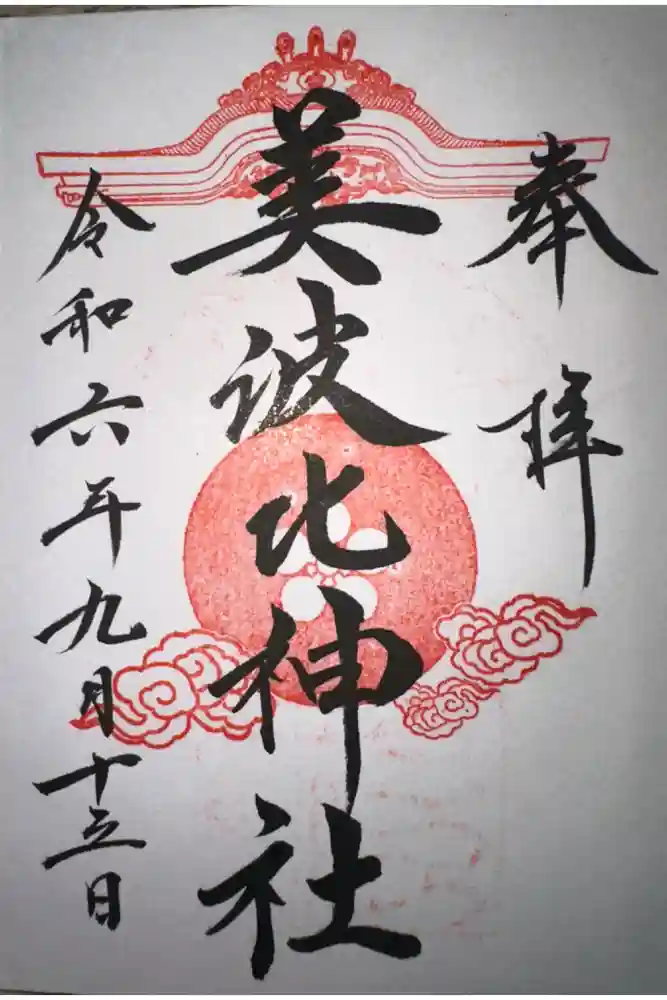 奉拝
美波比神社
令和六年九月十三日